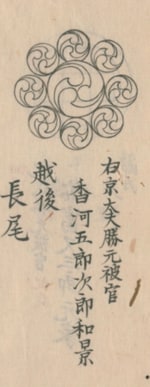 右京大夫勝元被官
香河五郎次郎和景
越後
長尾